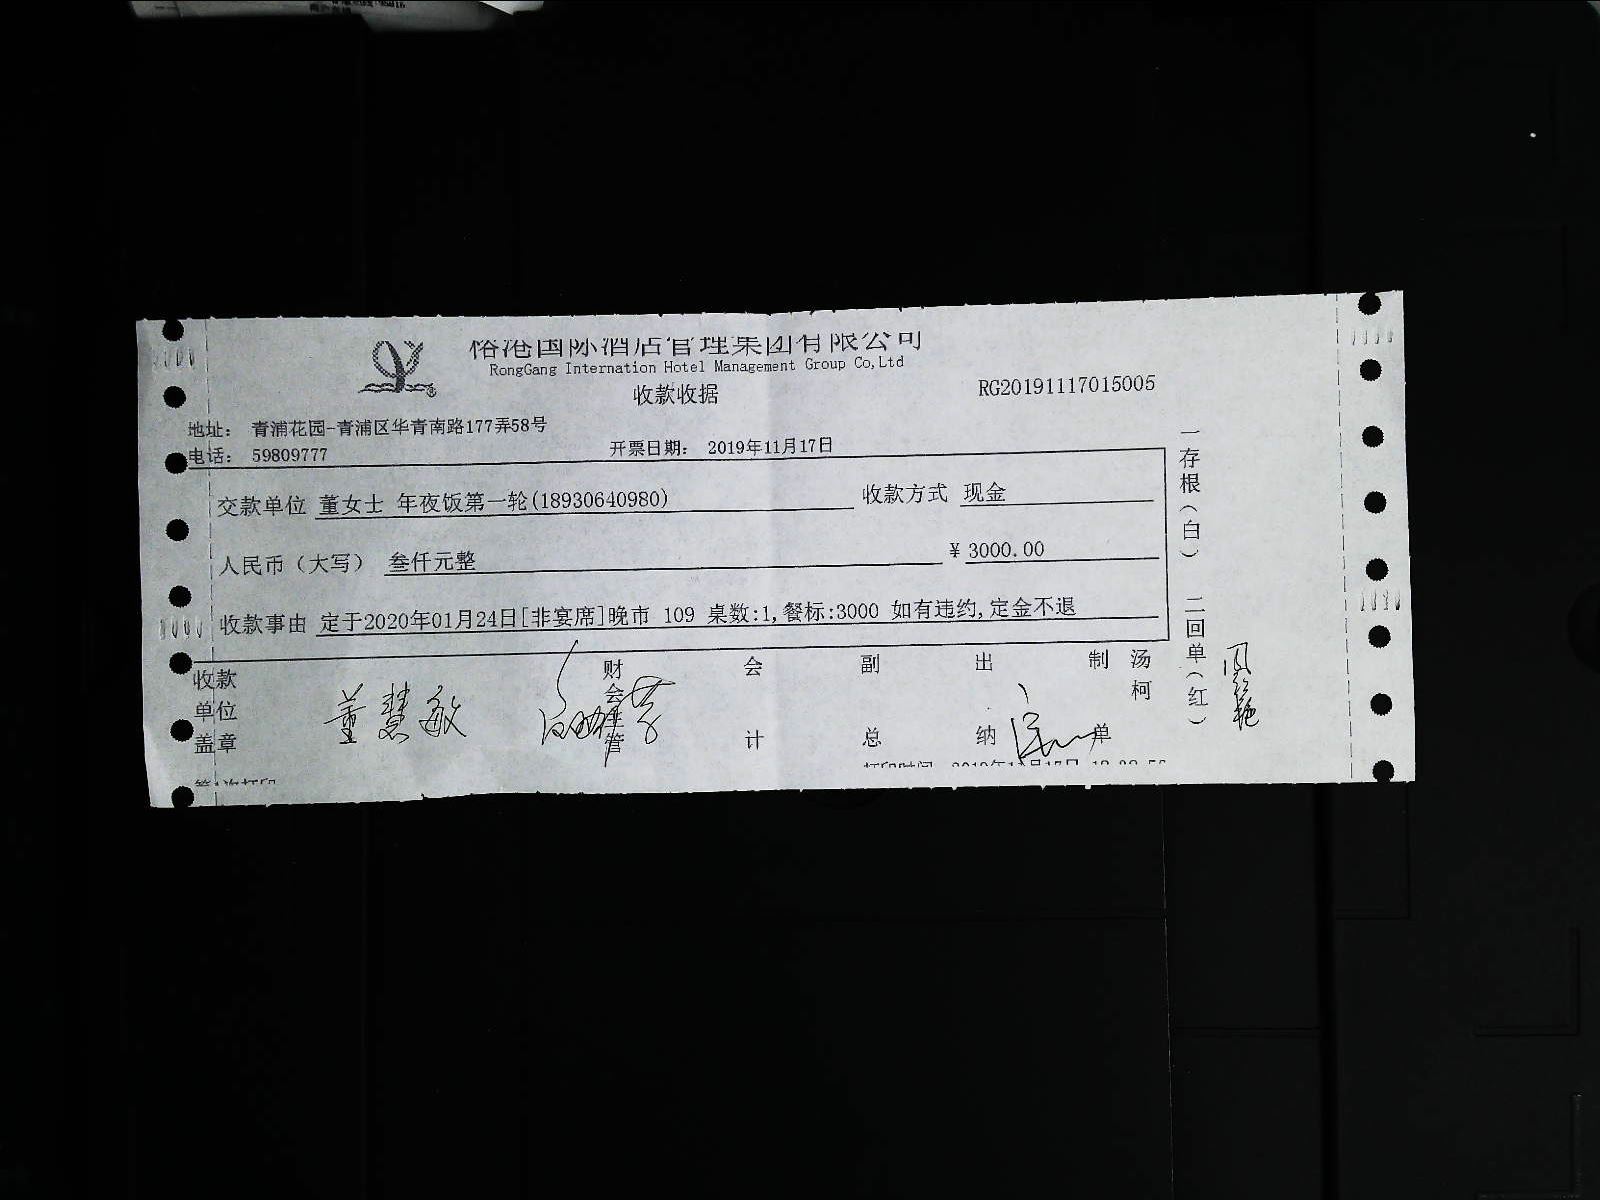 国际酒店管理集团有限公司
RongGang Internation Hotel Management Group Co,Ltd
收款收据
RG20191117015005
地址： 青浦花园-青浦区华青南路177弄58号
电话： 59809777
开票日期： 2019年11月17日
交款单位 董女士 年夜饭第一轮(18930640980)
收款方式 现金
人民币（大写） 叁仟元整
¥ 3000.00
收款事由 定于2020年01月24日[非宴席]晚市 109 桌数:1,餐标:3000 如有违约,定金不退
一存根（白） 二回单（红）
收款单位盖章
董慧敏
财会主管
会计
副总
出纳
制单
汤柯
打印时间 2019年11月17日